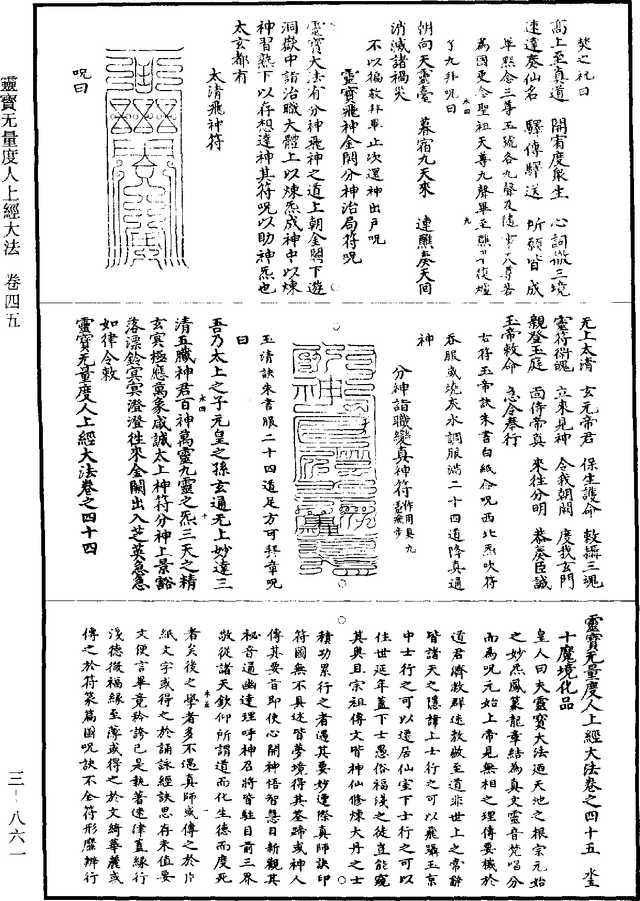 焚之祝曰
高上至真道　開宥度衆生　心詞徹三境
速達奏仙名　驛傳驛送　所願皆成
畢默念三尊玉號各九聲及隨
為國更念聖祖天尊九聲畢至醮
了九拜呪曰
朝向天靈臺　暮宿九天來　速醮奏天回
消滅諸禍災
靈寶飛神金闕分神治局符呪
靈寶大法有分神飛神之道上朝金闕下遊
洞嶽中詣治職大體上以煉炁成神中以煉
神習熊下以存想達神其符呪以助神炁也
太玄都有
太清飛神符
呪曰
无上太清　玄元帝君　保生護命　敕攝三魂
靈符衛魄　立來見神　令我朝開　度我玄門
親登玉庭　面侍帝真　來往分明　恭奏臣誠
玉帝敕命　急令奉行
右符玉帝訣朱書白紙念呪西北炁吹符
吞服或燒灰水調服滿二十四道降真通
神
分神詣職變真神符
玉清訣朱書服二十四道足方可拜章呪
曰
吾乃太上之子元皇之孫玄通无上妙達三
清五臟神君百神萬靈九靈之炁三天之精
玄冥極應萬象咸誠太上神符分神上景豁
落漂鈴冥冥澄澄往來金闕出入芝英急急
如律令敕
靈寶无量度人上經大法卷之四十四
靈寶无量度人上經大法卷之四十五
十魔境化品
皇人曰夫靈寶大法迺天地之根宗元始
之妙炁鳳篆龍章結為真文靈音梵唱分
而為呪元始上帝見無相之理傳要機於
道君濟救群迷教啟至道非世上之常辭
皆諸天之隱諱上士行之可以飛躡玉京
中士行之可以還居仙室下士行之可以
住世延年蓋下士愚俗福淺之徒豈能窺
其奧且宗祖傳文皆神仙修煉大丹之士
積功累行之者遇其要妙逢際真師訣印
符圖無不具述皆夢境得其筌蹄或神人
傳其要旨即使心開神悟智慧日新觀其
秘音通幽達理呼神召將皆駐目前三界
敬從諸天欽仰所謂道而化生德而度死
者矣後之學者多不遇真師或傳之於片
紙文字或得之於誦詠經訣思存未值要
文便言畢竟矜誇己是執著迷津直緣行
淺德微福緣至薄或得之於文綺華麗或
傳之於符篆篇目呪訣不全符形靡辨行
靈寶无量度人上經大法　卷四五
三-八六一